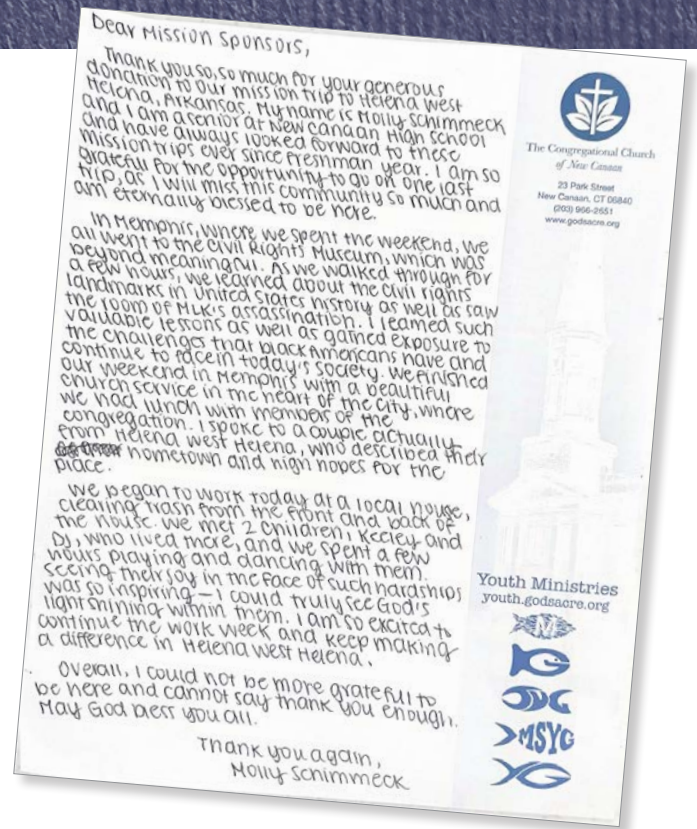 Dear Mission Sponsors,
Thank you so, so much for your generous
donation to our mission trip to Helena West
Helena, Arkansas. My name is Molly Schimmeck
and I am a senior at New Canaan High School
and have always looked forward to these
mission trips ever since freshman year. I am so
grateful for the opportunity to go on one last
trip, as I will miss this community so much and
am eternally blessed to be here.
In Memphis, where we spent the weekend, we
all went to the Civil Rights Museum, which was
beyond meaningful. As we walked through for
a few hours, we learned about the civil rights
landmarks in United States history as well as saw
the room of MLK's assassination. I learned such
valuable lessons as well as gained exposure to
the challenges that black Americans have and
continue to face in today's society. We finished
our weekend in Memphis with a beautiful
church service in the heart of the city, where
we had lunch with members of the
congregation. I spoke to a couple actually
from Helena West Helena, who described their
hometown and high hopes for the
place.
We began to work today at a local house,
clearing trash from the front and back of
the house. We met 2 children, Keeley and
DJ, who lived there, and we spent a few
hours playing and dancing with them.
Seeing their joy in the face of such hardships
was so inspiring – I could truly see God's
light shining within them. I am so excited to
continue the work week and keep making
a difference in Helena West Helena.
Overall, I could not be more grateful to
be here and cannot say thank you enough.
May God bless you all.
Thank you again,
Molly Schimmeck
The Congregational Church
of New Canaan
23 Park Street
New Canaan, CT 06840
(203) 966-2651
www.godsacre.org
Youth Ministries
youth.godsacre.org
MSYG